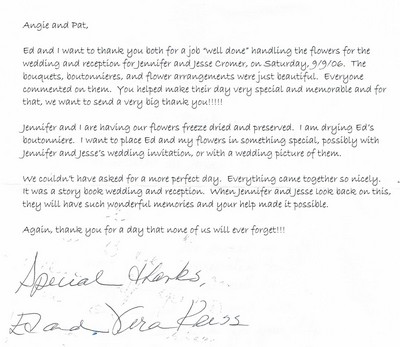 Angie and Pat,
Ed and I want to thank you both for a job "well done" handling the flowers for the
wedding and reception for Jennifer and Jesse Cromer, on Saturday, 9/9/06. The
bouquets, boutonnieres, and flower arrangements were just beautiful. Everyone
commented on them. You helped make their day very special and memorable and for
that, we want to send a very big thank you!!!!!
Jennifer and I are having our flowers freeze dried and preserved. I am drying Ed's
boutonniere. I want to place Ed and my flowers in something special, possibly with
Jennifer and Jesse's wedding invitation, or with a wedding picture of them.
We couldn't have asked for a more perfect day. Everything came together so nicely.
It was a story book wedding and reception. When Jennifer and Jesse look back on this,
they will have such wonderful memories and your help made it possible.
Again, thank you for a day that none of us will ever forget!!!
Special thanks,
Ed and Vera Reiss